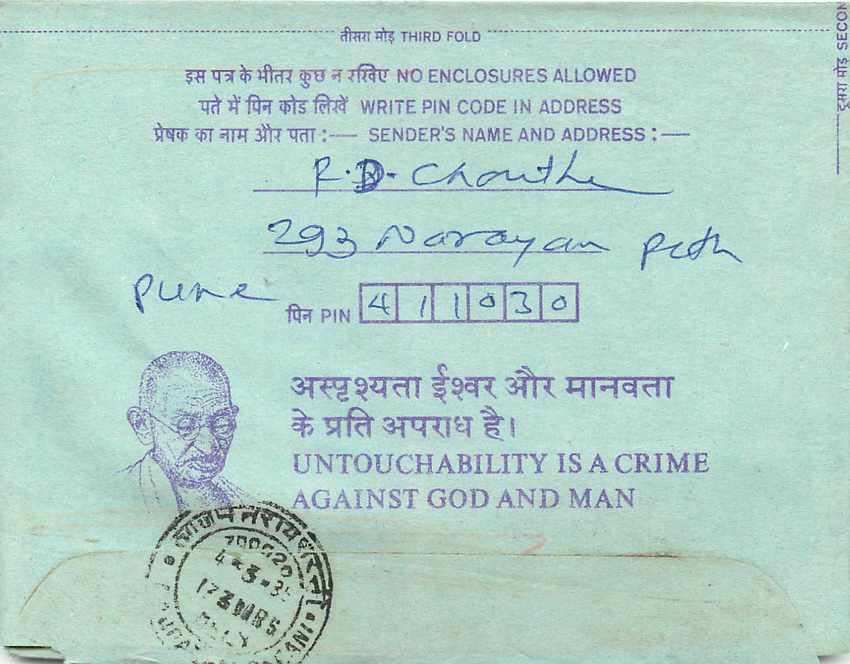 तीसरा मोड़ THIRD FOLD
दूसरा मोड़ SECON
इस पत्र के भीतर कुछ न रखिए NO ENCLOSURES ALLOWED
पते में पिन कोड लिखें WRITE PIN CODE IN ADDRESS
प्रेषक का नाम और पता :— SENDER'S NAME AND ADDRESS :—
R.D. Chouthe
293 Narayan Peth
Pune पिन PIN 411030
अस्पृश्यता ईश्वर और मानवता
के प्रति अपराध है।
UNTOUCHABILITY IS A CRIME
AGAINST GOD AND MAN